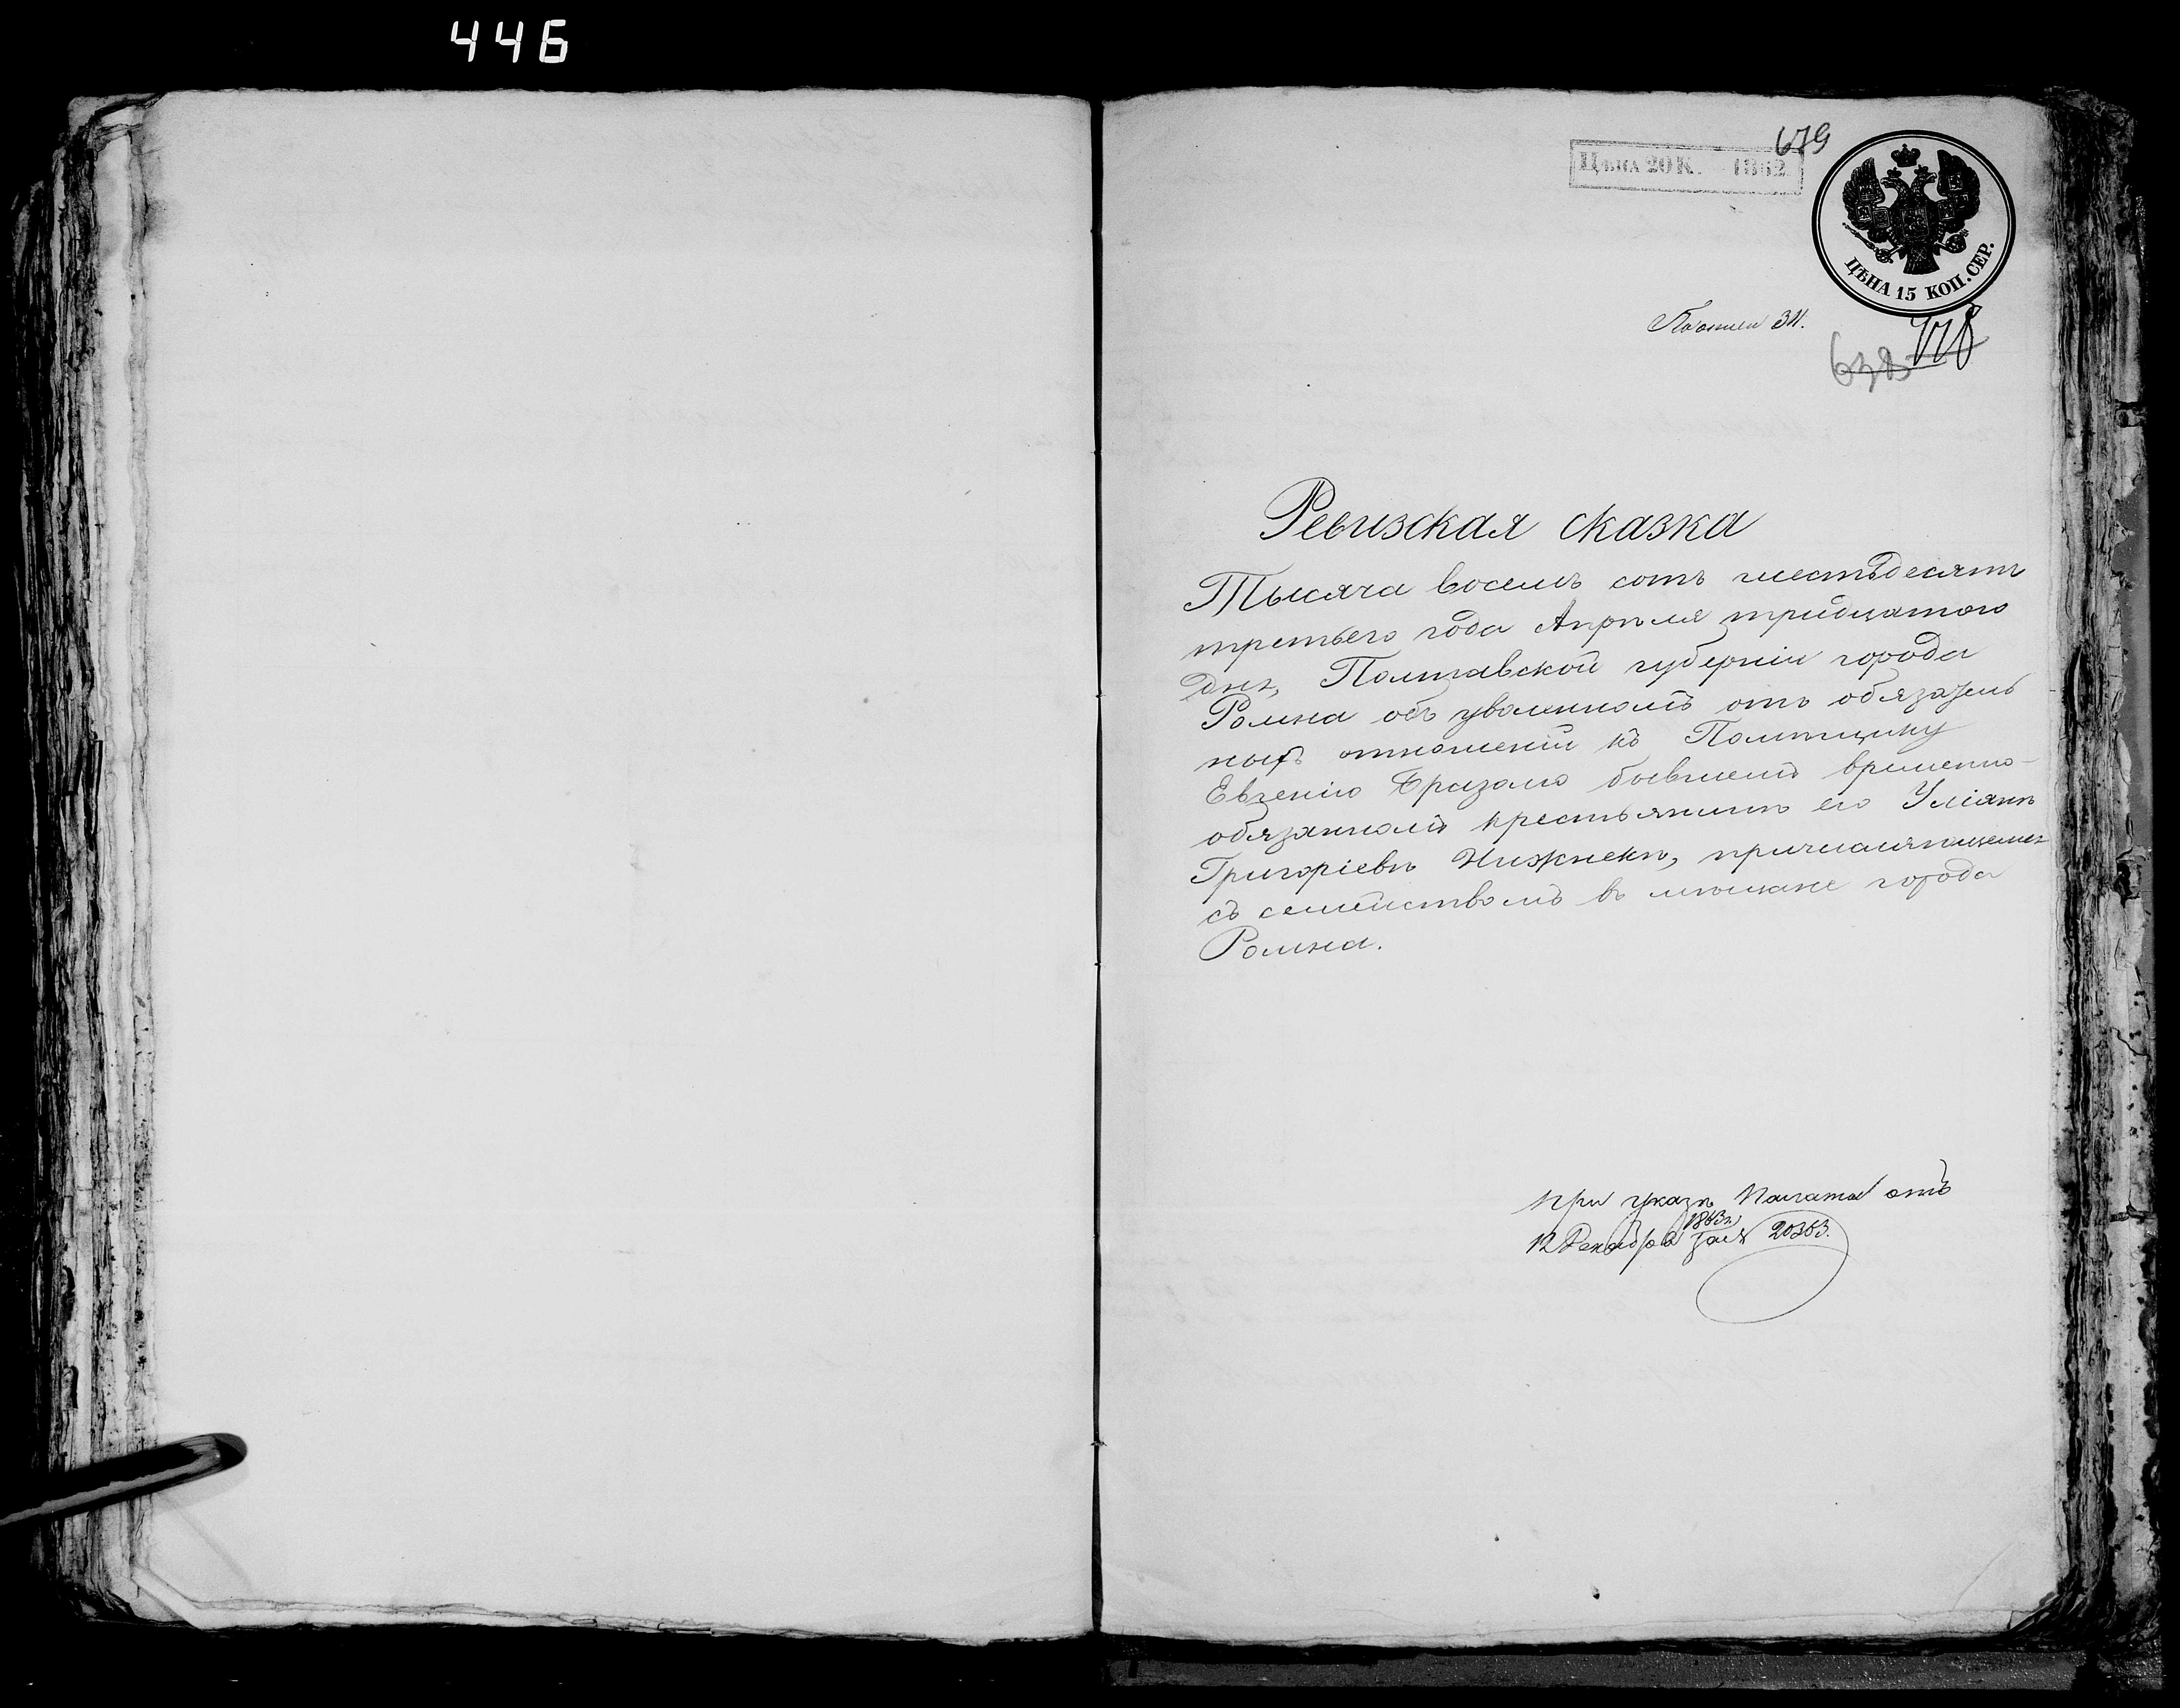 446
679
Цѣна 20 К. 1862
ЦѢНА 15 КОП. СЕР.
638
Ревизская сказка
Тысяча восемь сотъ шестьдесятъ
третьего года Апрѣля тридцатого
дня, Полтавской губерніи города
Ромна объ уволенномъ отъ обязатель
ныхъ отношеній къ Помѣщику
Евгенію бывшемъ временно-
обязанномъ крестьянинѣ его Уліанѣ
Григоріевѣ Нижнекѣ, причисляющемся
съ семействомъ въ мѣщане города
Ромна.
при указѣ Палаты отъ
1863 г.
12 Декабря за № 20363.